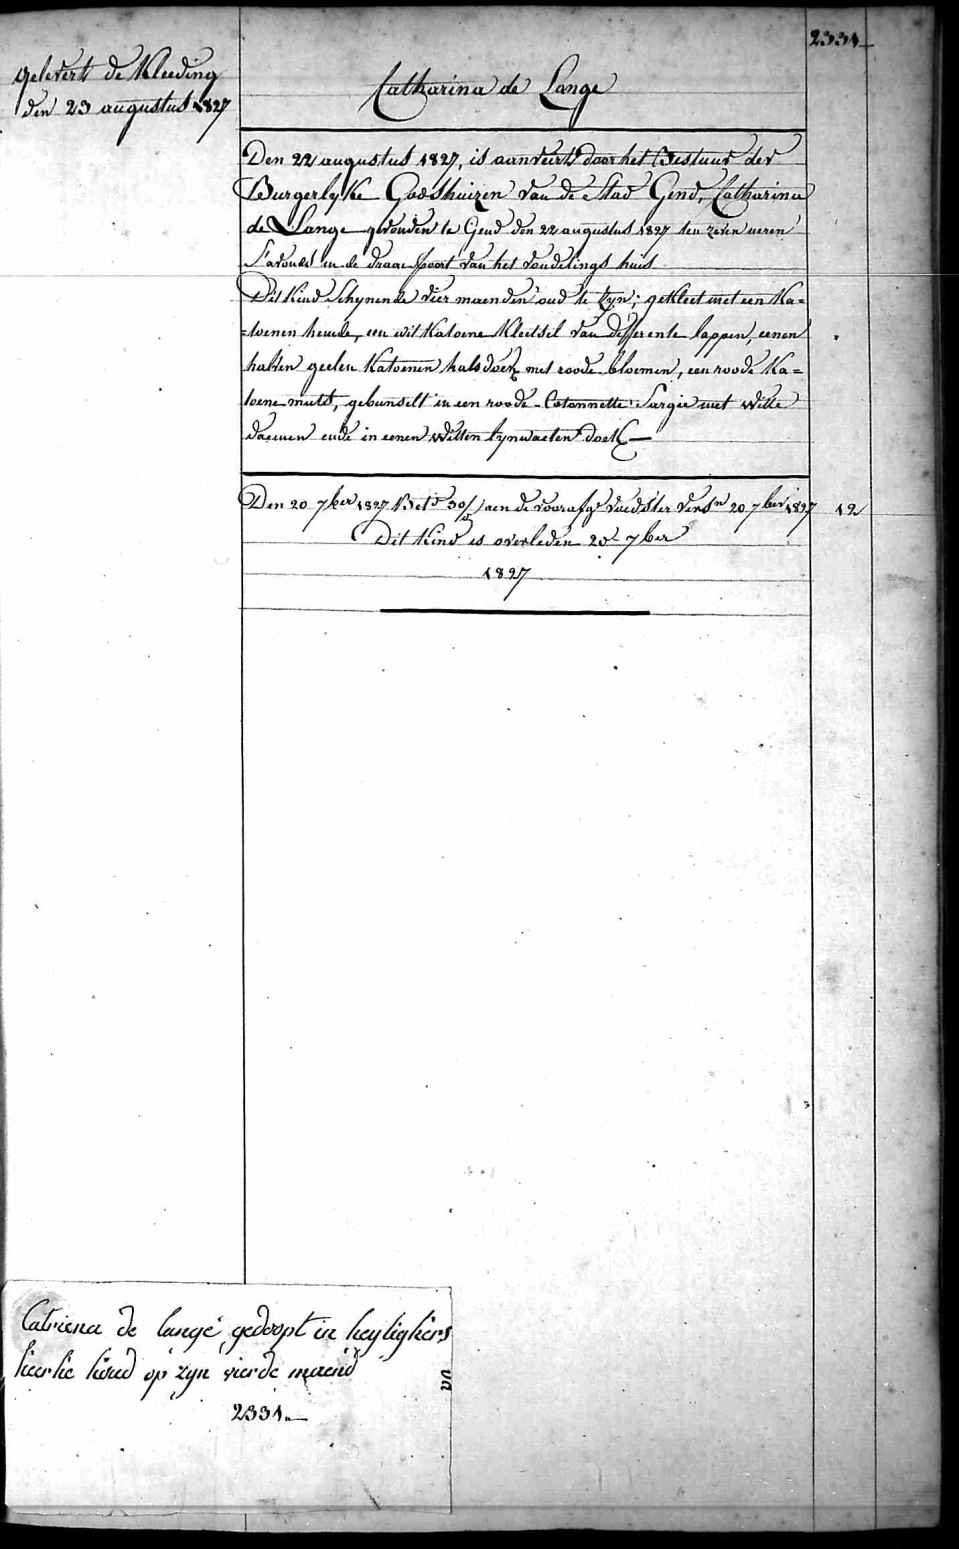 2331
gelevert de Kleeding
den 23 augustus 1827
Catharina de Lange
Den 22 augustus 1827, is aanveirt door het Bestuur der
Burgerlyke Godshuizen van de Stad Gend, Catharina
de Lange gevonden te Gend den 22 augustus 1827 ten zeven ueren
S'avonds in de draai poort van het vondelings huis
Dit Kind Schynende vier maenden oud te zyn; gekleet met een Ka=
=toenen hemde, een wit Katoene Kleitsel van differente lappen, eenen
halven geelen Katoenen halsdoek met roode bloemen, een roode Ka=
toene muts, gebunselt in een roode Cotonnette Sargie met witte
daemen ende in eenen witten lynwaeten doek
Den 20 7ber 1827 Bet 30/ aen de voorafge voedster vers 20 7ber 1827 12
Dit Kind is overleden 20 7ber
1827
Catriena de lange gedoopt in heyligkers
kerke houd op zyn vierde maend
2331